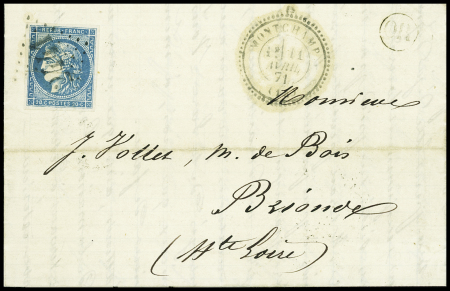 REPUB. FRANC.
MONTCHAMP
11
AVRIL
71
OR
Monsieur
J. Vollet, M. de Bois
Brioude
(Hte Loire)